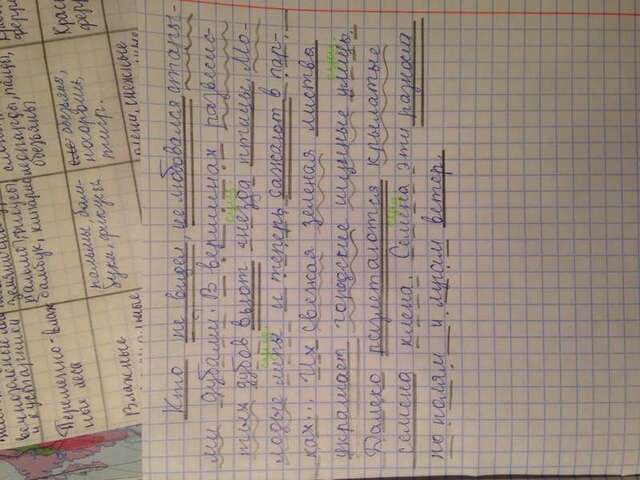 вечнозеленые
и кустарники
пальмы, фикусы
бамбук, кипарис
леопарды, панды,
обезьяны
Переменно-влаж
ные леса
пальмы, бам-
буки, фикусы
обезьяны,
носороги,
тигр.
Крас
ферр
Влажные
олени, снежные
Кто не видел, не любовался стары-
ми дубами? В вершинах развесис-
тых дубов вьют гнёзда птицы. Мо-
лодые липы и теперь сажают в пар-
ках... Их свежая зеленая листва
украшает городские шумные улицы.
Далеко разлетаются крылатые
семена клена. Семена эти разносит
по полям и лугам ветер.